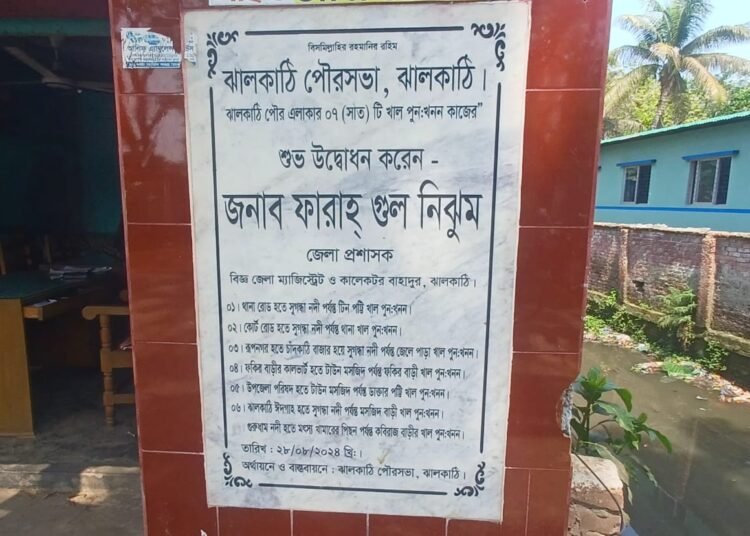 বিসমিল্লাহির রহমানির রহিম
ঝালকাঠি পৌরসভা, ঝালকাঠি।
"ঝালকাঠি পৌর এলাকার ০৭ (সাত) টি খাল পুন:খনন কাজের"
শুভ উদ্বোধন করেন -
জনাব ফারাহ্ গুল নিঝুম
জেলা প্রশাসক
বিজ্ঞ জেলা ম্যাজিস্ট্রেট ও কালেকটর বাহাদুর, ঝালকাঠি।
০১। থানা রোড হতে সুগন্ধা নদী পর্যন্ত টিন পট্টি খাল পুন:খনন।
০২। কোর্ট রোড হতে সুগন্ধা নদী পর্যন্ত থানা খাল পুন:খনন।
০৩। রূপনগর হতে চাঁদকাঠি বাজার হয়ে সুগন্ধা নদী পর্যন্ত জেলে পাড়া খাল পুন:খনন।
০৪। ফকির বাড়ীর কালভার্ট হতে টাউন মসজিদ পর্যন্ত ফকির বাড়ী খাল পুন:খনন।
০৫। উপজেলা পরিষদ হতে টাউন মসজিদ পর্যন্ত ডাক্তার পট্টি খাল পুন:খনন।
০৬। ঝালকাঠি ঈদগাহ হতে সুগন্ধা নদী পর্যন্ত মসজিদ বাড়ী খাল পুন:খনন।
গুরুধাম নদী হতে মৎস্য খামারের পিছন পর্যন্ত কবিরাজ বাড়ীর খাল পুন:খনন।
তারিখ : ২৮/০৮/২০২৪ খ্রি:।
অর্থায়নে ও বাস্তবায়নে : ঝালকাঠি পৌরসভা, ঝালকাঠি।